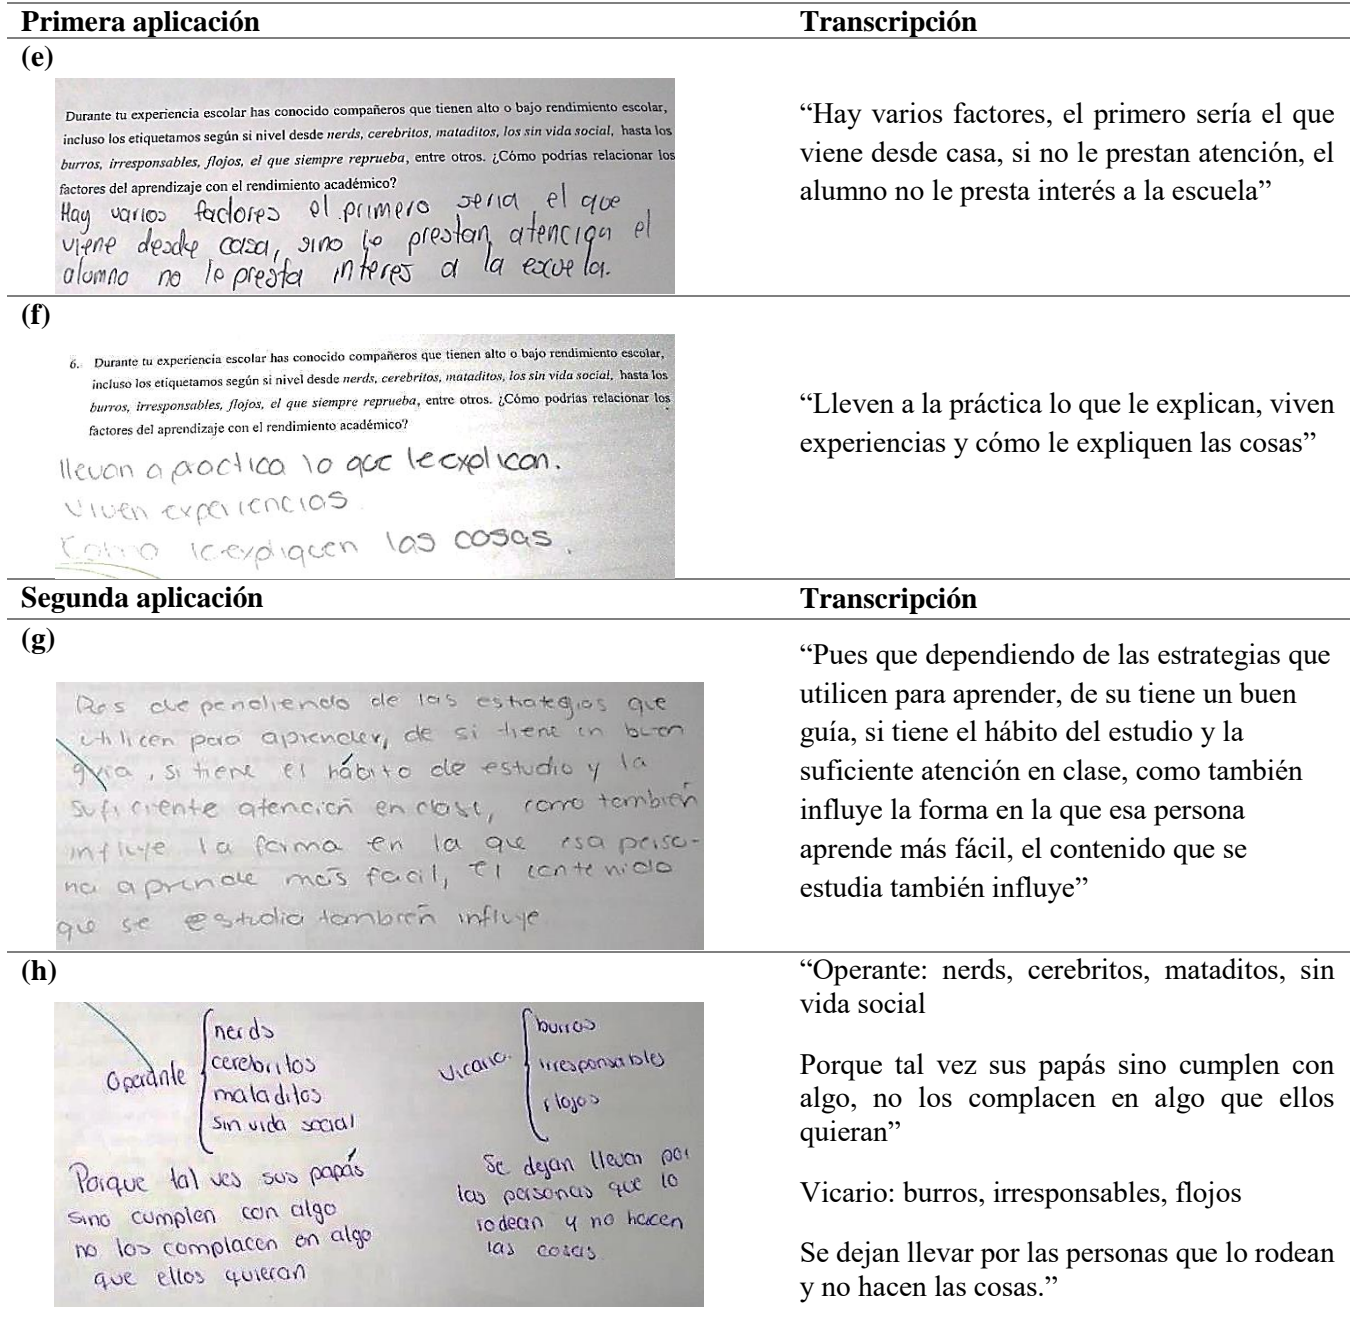 Primera aplicación
Transcripción
(e)
Durante tu experiencia escolar has conocido compañeros que tienen alto o bajo rendimiento escolar,
incluso los etiquetamos según si nivel desde nerds, cerebritos, mataditos, los sin vida social, hasta los
burros, irresponsables, flojos, el que siempre reprueba, entre otros. ¿Cómo podrías relacionar los
factores del aprendizaje con el rendimiento académico?
Hay varios factores el primero seria el que
viene desde casa, sino le prestan atención el
alumno no le presta interes a la escuela.
“Hay varios factores, el primero sería el que
viene desde casa, si no le prestan atención, el
alumno no le presta interés a la escuela”
(f)
6. Durante tu experiencia escolar has conocido compañeros que tienen alto o bajo rendimiento escolar,
incluso los etiquetamos según si nivel desde nerds, cerebritos, mataditos, los sin vida social, hasta los
burros, irresponsables, flojos, el que siempre reprueba, entre otros. ¿Cómo podrías relacionar los
factores del aprendizaje con el rendimiento académico?
llevan a practica lo que le explican.
Viven experiencias
Como le expliquen las cosas.
“Lleven a la práctica lo que le explican, viven
experiencias y cómo le expliquen las cosas”
Segunda aplicación
Transcripción
(g)
Pues dependiendo de las estrategias que
utilicen para aprender, de si tiene un buen
guía, si tiene el hábito de estudio y la
suficiente atención en clase, como también
influye la forma en la que esa perso-
na aprende más facil, el contenido
que se estudia también influye
“Pues que dependiendo de las estrategias que
utilicen para aprender, de su tiene un buen
guía, si tiene el hábito del estudio y la
suficiente atención en clase, como también
influye la forma en la que esa persona
aprende más fácil, el contenido que se
estudia también influye”
(h)
Operante
nerds
cerebritos
mataditos
sin vida social
Porque tal ves sus papás
sino cumplen con algo
no los complacen en algo
que ellos quieran
Vicario
burros
irresponsables
flojos
Se dejan llevar por
las personas que lo
rodean y no hacen
las cosas.
“Operante: nerds, cerebritos, mataditos, sin
vida social
Porque tal vez sus papás sino cumplen con
algo, no los complacen en algo que ellos
quieran”
Vicario: burros, irresponsables, flojos
Se dejan llevar por las personas que lo rodean
y no hacen las cosas.”